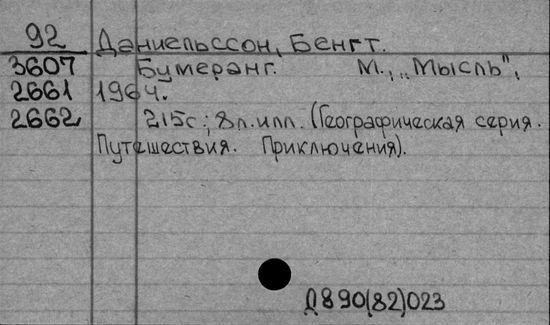 92 Даниельссон, Бенгт.
3607 Бумеранг. М., „Мысль",
2661 1964.
2662 215с; 8л.илл. (Географическая серия.
Путешествия. Приключения).
Д890(82)023